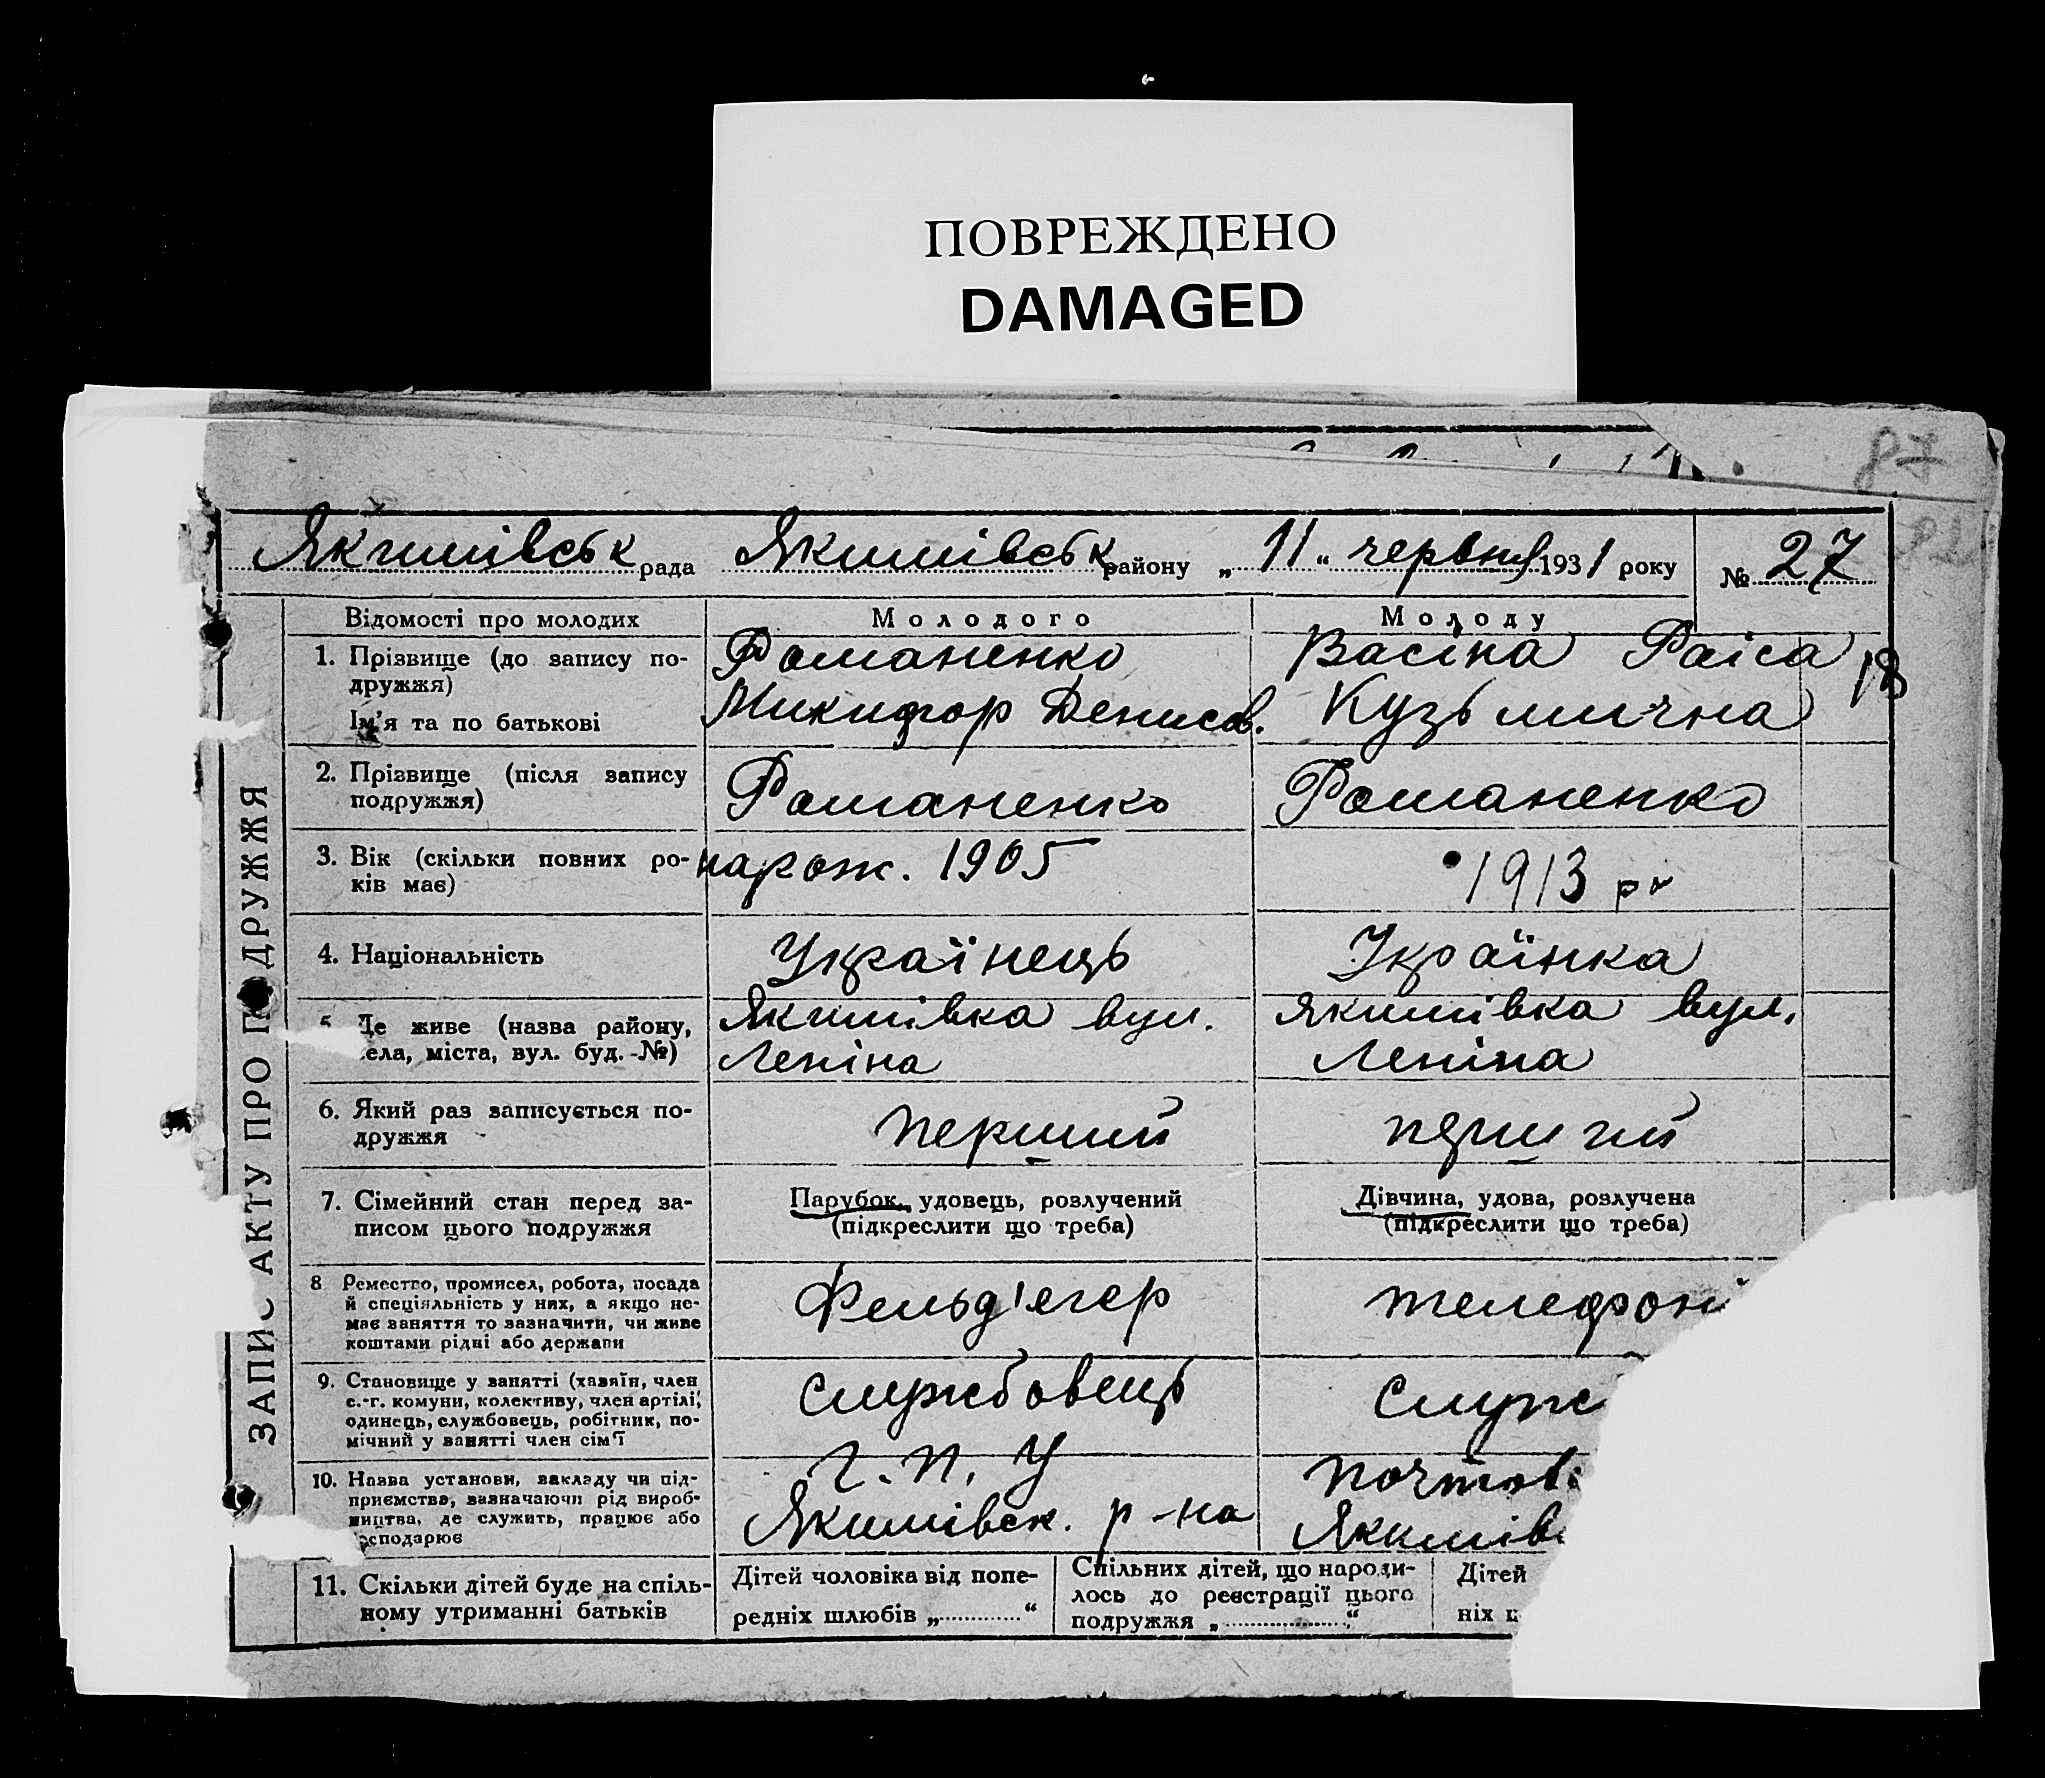 ПОВРЕЖДЕНО
DAMAGED
87
Якимівськ рада Якимівськ району „ 11 “ червня 1931 року № 27
ЗАПИС АКТУ ПРО ПОДРУЖЖЯ
Відомості про молодих
Молодого
Молоду
1. Прізвище (до запису по-
дружжя)
Ім'я та по батькові
Романенко
Микифор Денисов.
Васіна Раіса
Кузьмична
18
2. Прізвище (після запису
подружжя)
Романенко
Романенко
3. Вік (скільки повних ро-
ків має)
нарож. 1905
1913 р
4. Національність
Українець
Українка
5. Де живе (назва району,
села, міста, вул. буд. №)
Якимівка вул.
Леніна
Якимівка вул.
Леніна
6. Який раз записується по-
дружжя
перший
перший
7. Сімейний стан перед за-
писом цього подружжя
Парубок, удовець, розлучений
(підкреслити що треба)
Дівчина, удова, розлучена
(підкреслити що треба)
8 Ремество, промисел, робота, посада
й спеціяльність у них, а якщо не-
має заняття то зазначити, чи живе
коштами рідні або держави
Фельд'єгер
телефоні
9. Становище у занятті (хазяїн, член
с.-г. комуни, колективу, член артілі,
одинець, службовець, робітник, по-
мічний у занятті член сім'ї
службовець
служ
10. Назва установи, закладу чи під-
приємства, зазначаючи рід вироб-
ництва, де служить, працює або
господарює
Г. П. У
Якимівск. р-на
Почтові
Якимів
11. Скільки дітей буде на спіль-
ному утриманні батьків
Дітей чоловіка від попе-
редніх шлюбів „ “
Спільних дітей, що народи-
лось до реєстрації цього
подружжя „ “
Дітей
ніх